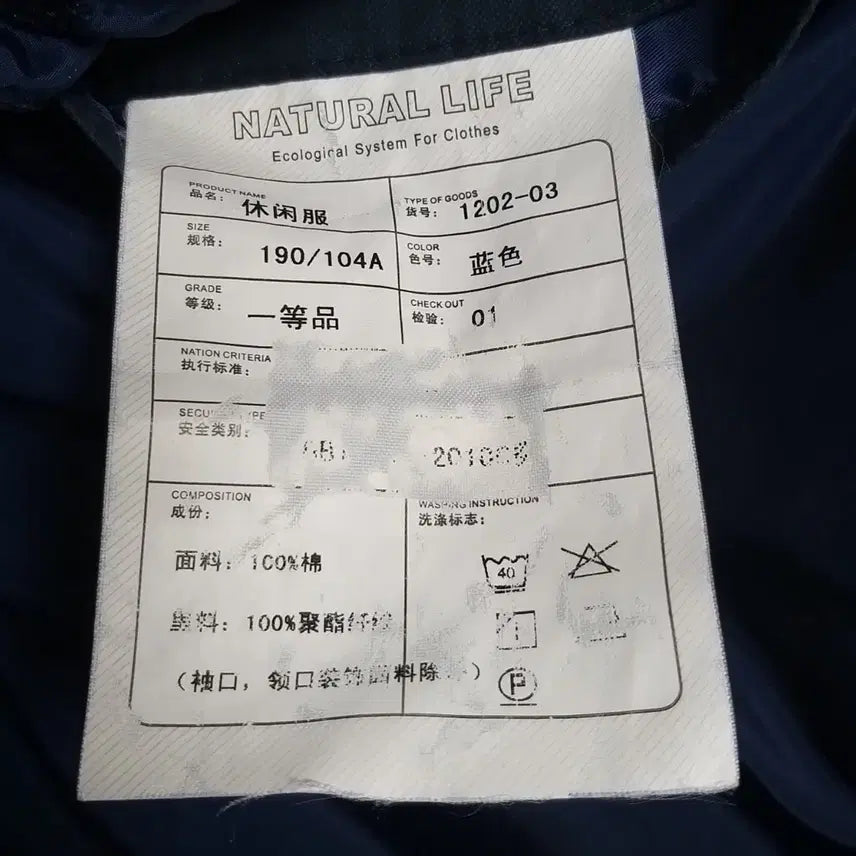 NATURAL LIFE
Ecological System For Clothes
PRODUCT NAME
品名: 休闲服
TYPE OF GOODS
货号: 1202-03
SIZE
规格: 190/104A
COLOR
色号: 蓝色
GRADE
等级: 一等品
CHECK OUT
检验: 01
NATION CRITERIA
执行标准:
安全类别:
COMPOSITION
成份:
WASHING INSTRUCTION
洗涤标志:
面料: 100%棉
40
料: 100%聚酯纤
(袖口, 领口装饰面料除 )
P